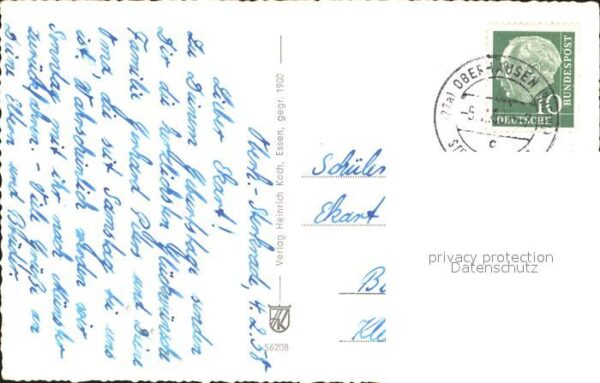 Oberh.-Sterkrade, 4.2.58
Lieber Ekart!
Zu Deinem Geburtstage senden
Dir die herzlichsten Glückwünsche
Familie Gerhard Pelers und Deine
Oma, die seit Samstag bei uns
ist. Wahrscheinlich werden wir
Sonntag mit ihr nach Münster
zurückfahren. - Viele Grüße an
Deine Eltern und
Verlag Heinrich Koch, Essen, gegr. 1900
HK
56208
(22a) OBERHAUSEN
-5.
c
10
DEUTSCHE
BUNDESPOST
Schüler
Ekart
privacy protection
Datenschutz